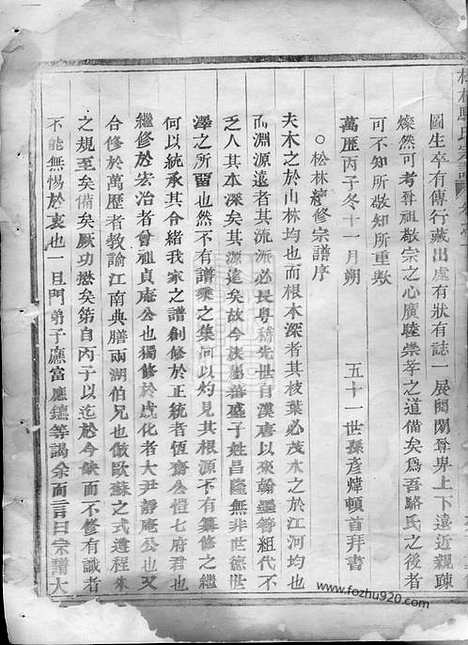 圖生卒有傳行藏出處有狀有誌一展閱間尊卑上下遠近親疎
燦然可考尊祖敬宗之心廣睦崇孝之道備矣爲吾駱氏之後者
可不知所敬知所重歟
萬歷丙子冬十一月朔 五十一世孫彥煒頓首拜書
○松林續修宗譜序
夫木之於山林均也而根本深者其枝葉必茂水之於江河均也
而淵源遠者其流派必長粤稽先世自漢唐以來翰墨簪組代不
乏人其本深矣其源遠矣故今族屬蕃盛子姓昌隆無非世德世
澤之所留也然不有譜乘之集何以灼見其根源不有纂修之繼
何以統承其合併哉我家之譜創修於正統者恆齋公愷七府君也
繼修於宏治者曾祖貞庵公也獨修於虔化者大尹靜庵公也又
合修於萬歷者教諭江南典膳兩湖伯兄也倣歐蘇之式遵程朱
之規至矣備矣厥功懋矣第自丙子以迄於今缺而不修有識者
不能無惕於衷也一旦門弟子應富應鑣等謁余而言曰宗譜大
www.fozhu920.com